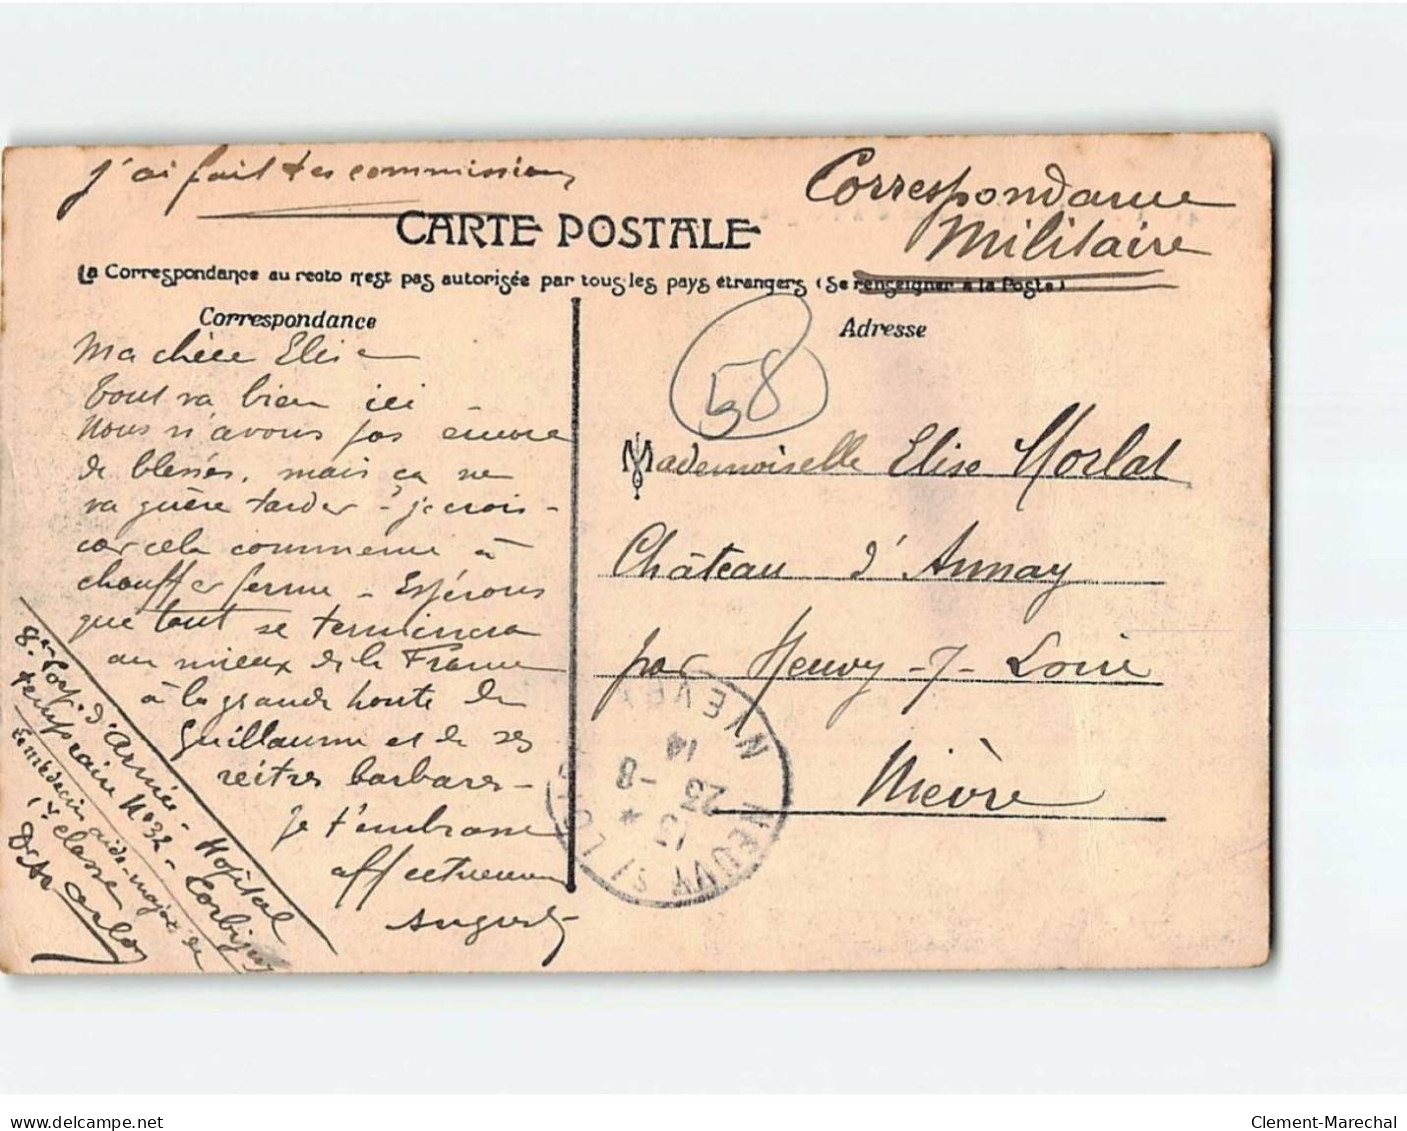 j'ai fait tes commissions
Correspondance
Militaire
CARTE POSTALE
La Correspondance au recto n'est pas autorisée par tous les pays étrangers (Se renseigner à la Poste)
Correspondance
Adresse
Ma chère Elise
tout va bien ici
Nous n'avons pas encore
de blessés, mais ça ne
va guère tarder - je crois -
car cela commence à
chauffer ferme - Espérons
que tout se terminera
au mieux de la France
à la grande honte de
Guillaume et de ses
reitres barbares -
je t'embrasse
affectueusement
August
8e Corps d'Armée - Hôpital
temporaire No 32 - Corbigny
Le médecin aide-major de
1e classe
Dr
58
Mademoiselle Elise Morlat
Château d'Annay
par Neuvy-s-Loire
Nièvre
NEUVY S/ LOIRE
NIEVRE
13
23 -8
14
Clement-Marechal